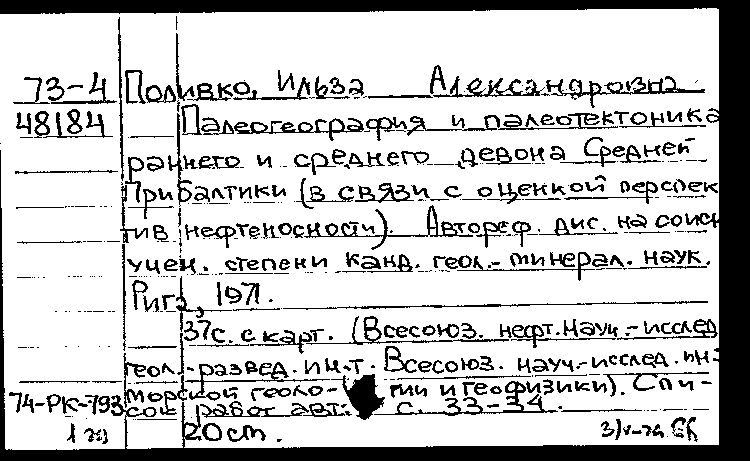 73-4 Поливко, Ильза Александровна
48184 Палеогеография и палеотектоника
раннего и среднего девона Средней
Прибалтики (в связи с оценкой перспек
тив нефтеносности). Автореф. дис. на соиск
учен. степени канд. геол.-минерал. наук.
Рига, 1971.
37с. с карт. (Всесоюз. нефт. науч.-исслед
геол.-развед. ин-т. Всесоюз. науч.-исслед. ин-т
74-РК-793 морской геоло- гии и геофизики). Спи-
сок работ авт.: с. 33-34.
20см.